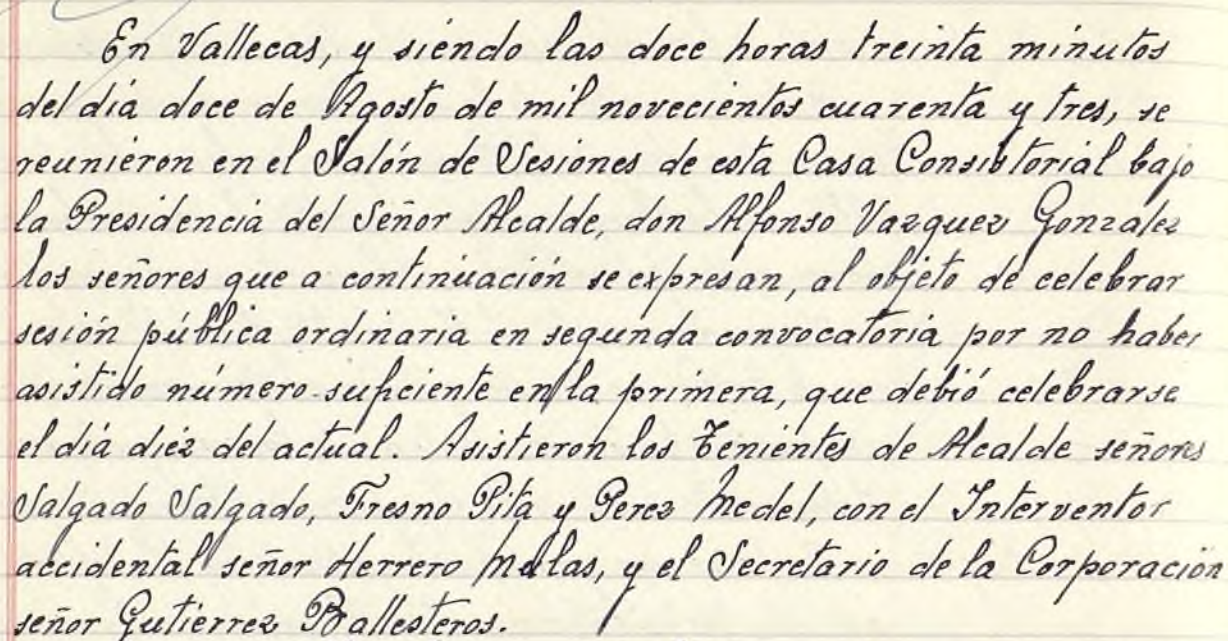 En Vallecas, y siendo las doce horas treinta minutos
del día doce de Agosto de mil novecientos cuarenta y tres, se
reunieron en el Salón de Sesiones de esta Casa Consistorial bajo
la Presidencia del Señor Alcalde, don Alfonso Vazquez Gonzalez
los señores que a continuación se expresan, al objeto de celebrar
sesión pública ordinaria en segunda convocatoria por no haber
asistido número suficiente en la primera, que debió celebrarse
el día diéz del actual. Asistieron los Tenientes de Alcalde señores
Salgado Salgado, Fresno Pita y Perez Medel, con el Interventor
accidental señor Herrero y el Secretario de la Corporación
señor Gutierrez Ballesteros.